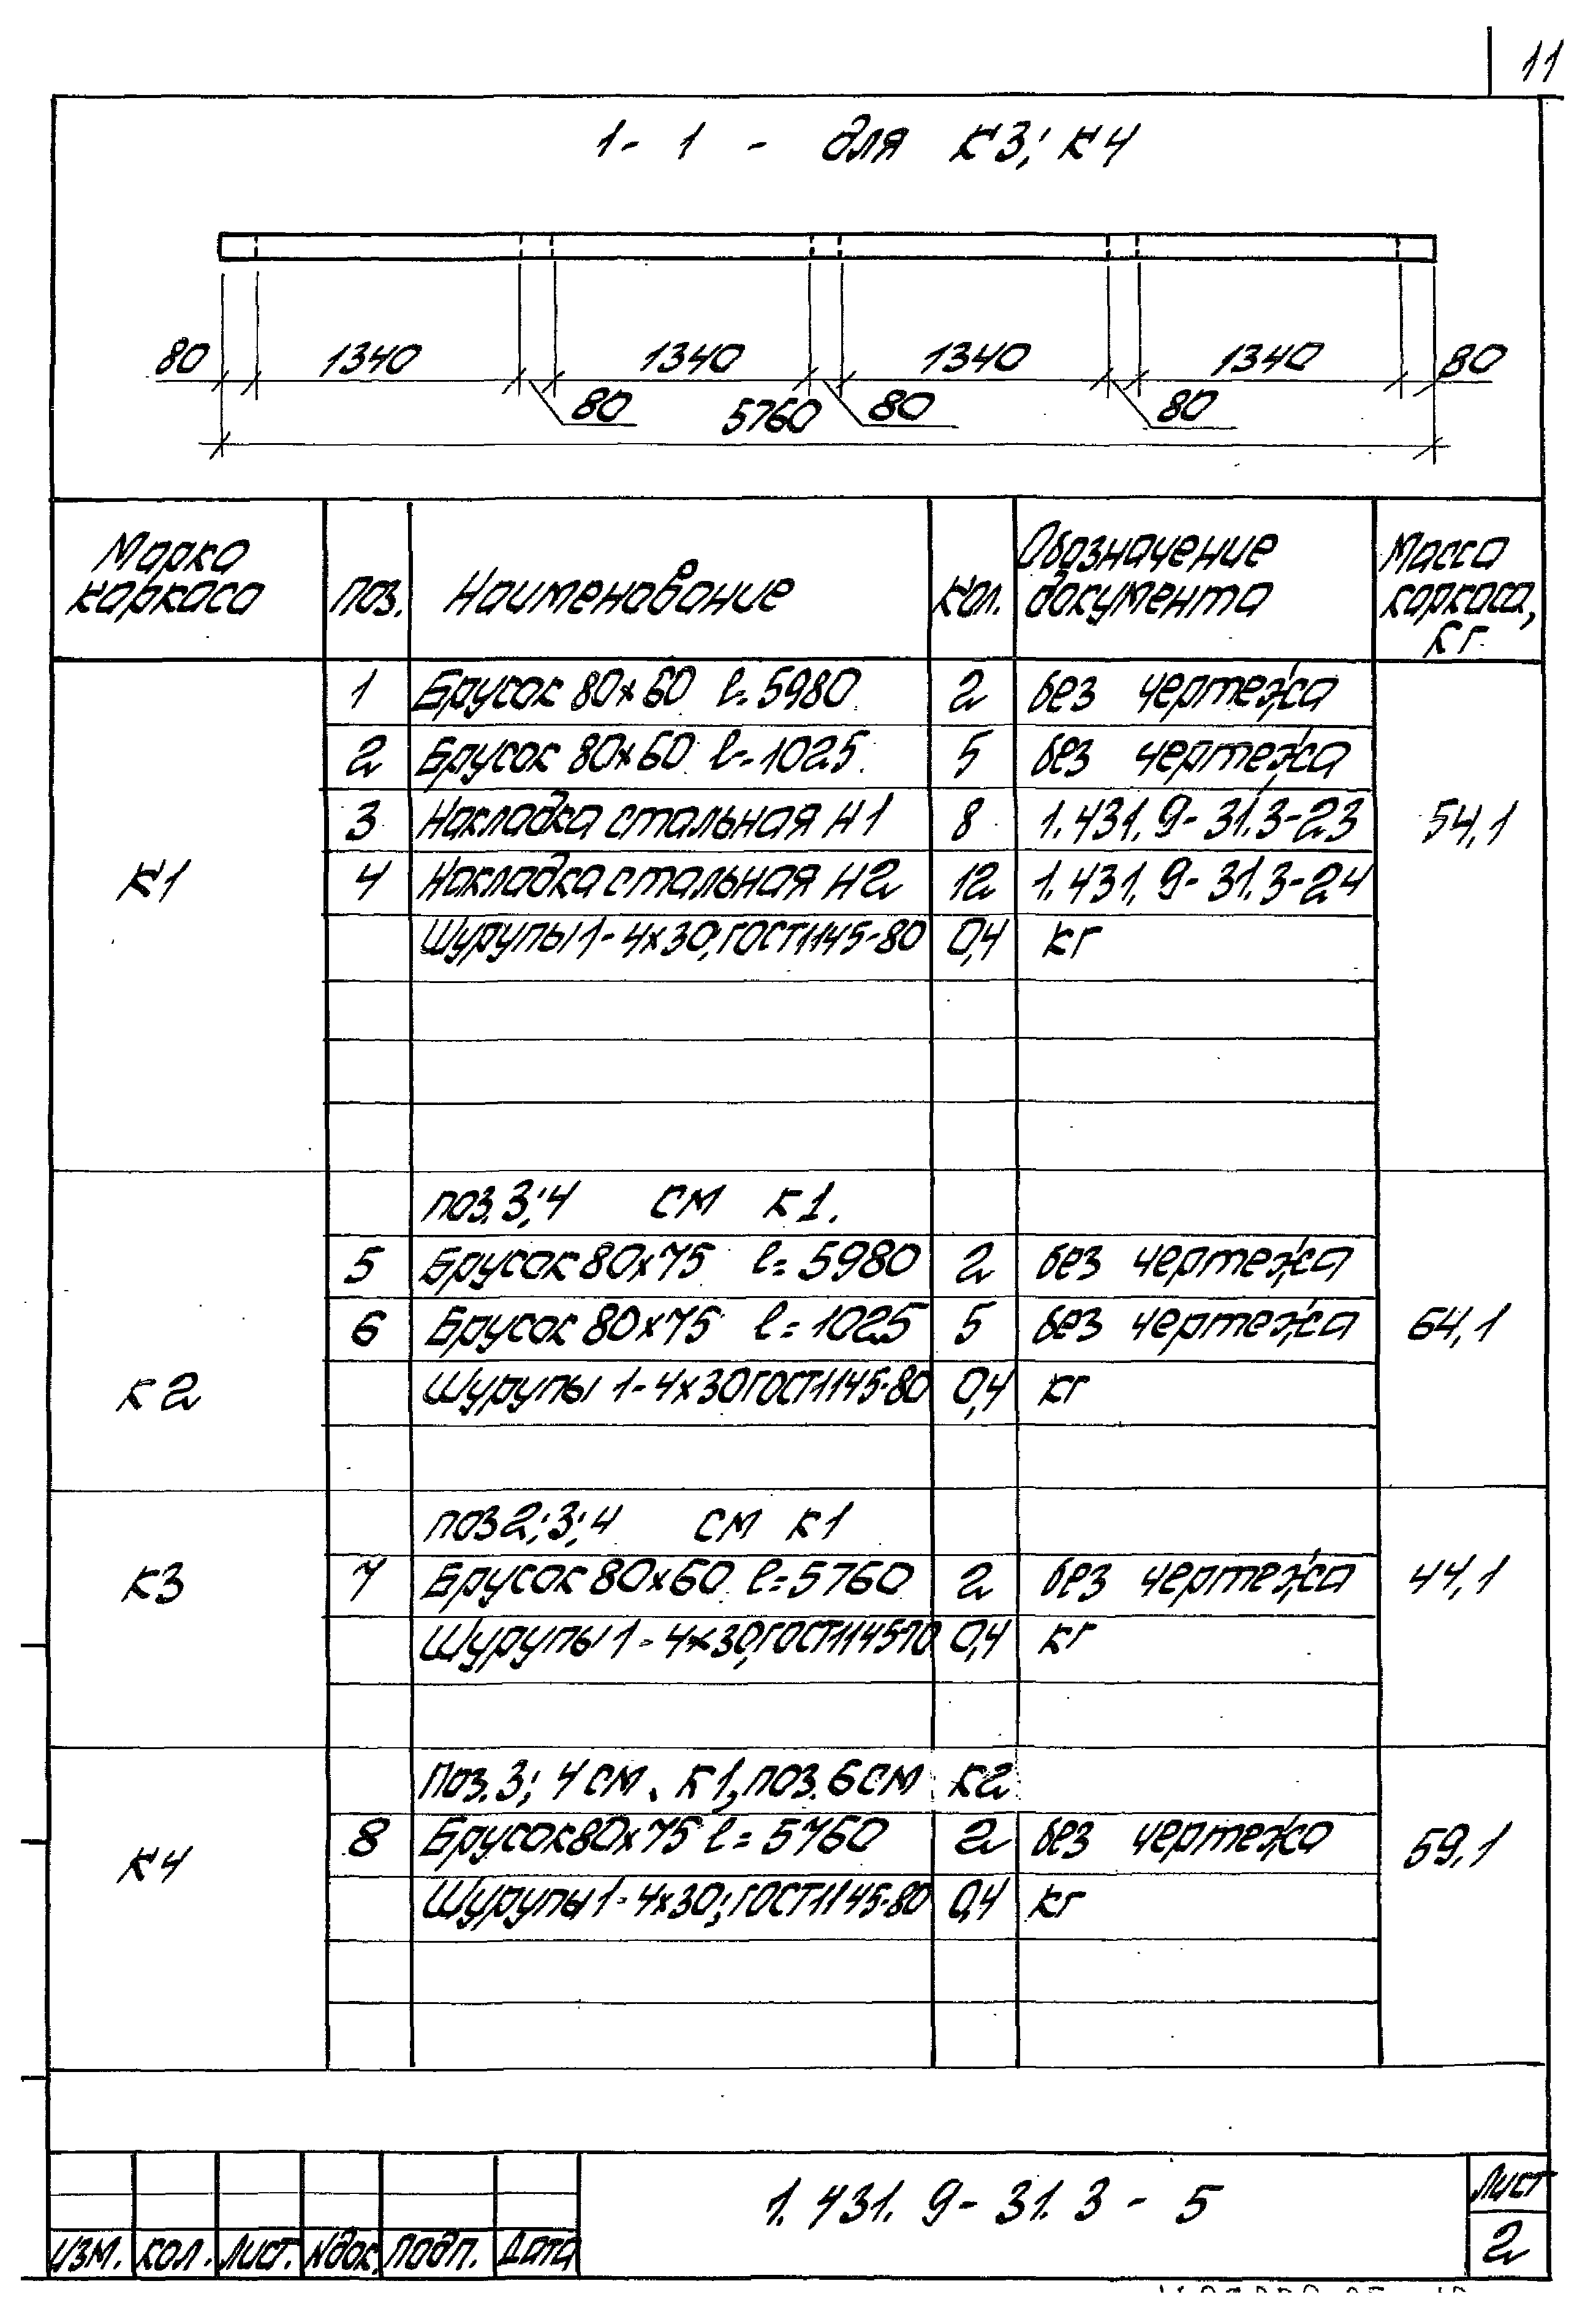 11
1-1 - для К3; К4
80 1340 1340 1340 1340 80
80 5760 80 80
Марка каркаса Поз. Наименование Кол. Обозначение документа Масса каркаса, кг
К1
1 Брусок 80х60 l=5980 2 без чертежа
2 Брусок 80х60 l=1025 5 без чертежа
3 Накладка стальная Н1 8 1.431.9-31.3-23 54,1
4 Накладка стальная Н2 12 1.431.9-31.3-24
Шурупы 1-4х30; ГОСТ1145-80 0,4 кг
К2
поз. 3; 4 см К1.
5 Брусок 80х75 l=5980 2 без чертежа
6 Брусок 80х75 l=1025 5 без чертежа 64,1
Шурупы 1-4х30 ГОСТ1145-80 0,4 кг
К3
поз 2; 3; 4 см К1
7 Брусок 80х60 l=5760 2 без чертежа 44,1
Шурупы 1-4х30; 0,4 кг
К4
Поз. 3; 4 см. К1, поз. 6 см К2
8 Брусок 80х75 l=5760 2 без чертежа 59,1
Шурупы 1-4х30; ГОСТ1145-80 0,4 кг
1.431.9-31.3-5
Лист
2
Изм. Кол. Лист. Nдок. Подп. Дата